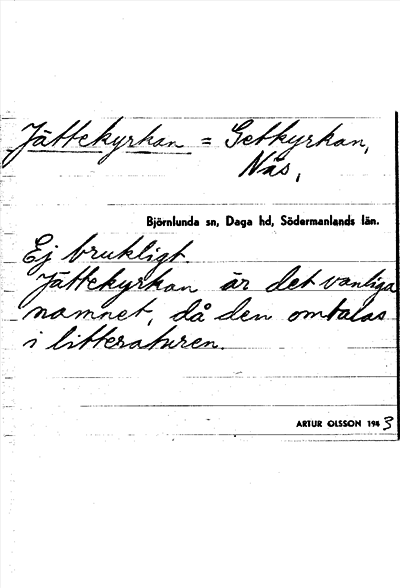 Jättekyrkan = Getkyrkan,
Näs,
Björnlunda sn, Daga hd, Södermanlands län.
Ej brukligt.
Jättekyrkan är det vanliga
namnet, då den omtalas
i litteraturen.
ARTUR OLSSON 1943